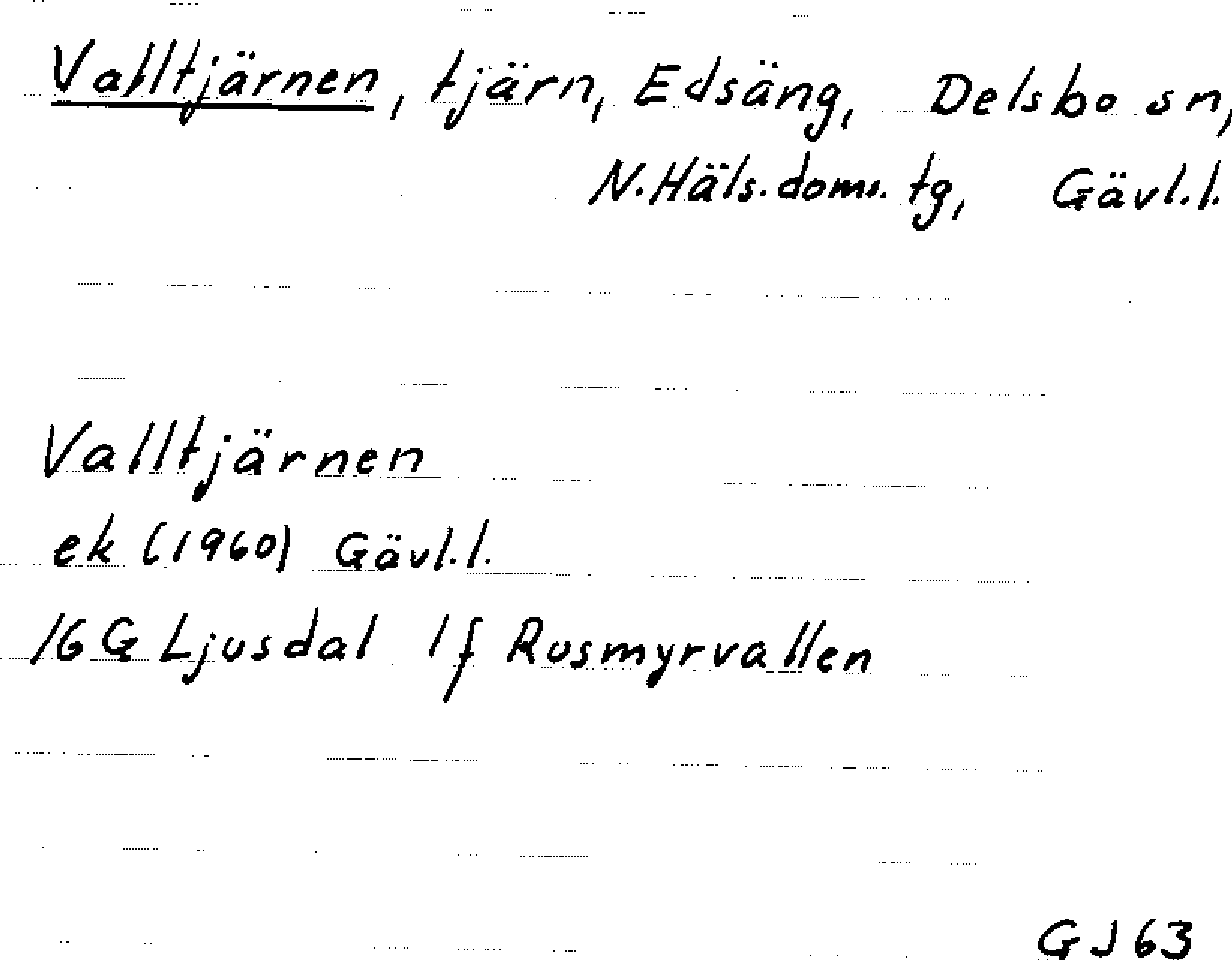 Valltjärnen, tjärn, Edsäng, Delsbo sn,
N.Häls.doms.tg, Gävl.l.
Valltjärnen
ek (1960) Gävl.l.
16G Ljusdal 1f Rosmyrvallen
GJ 63